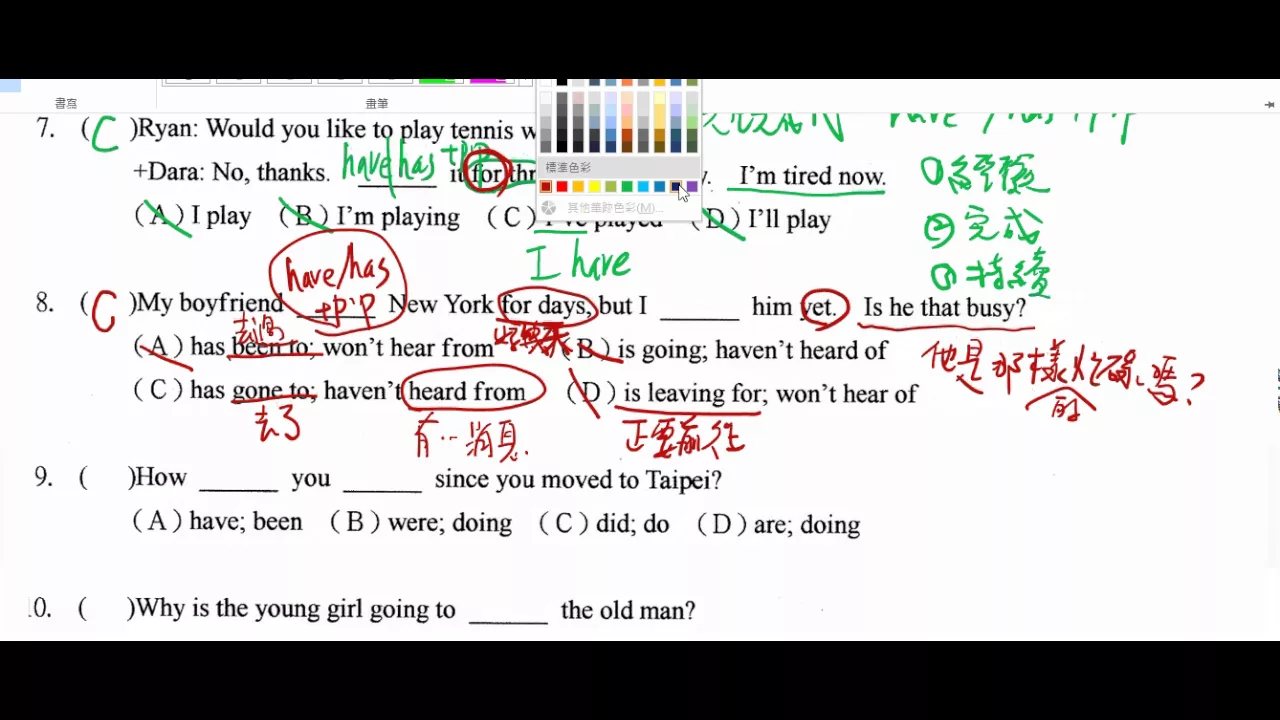 書寫 畫筆
have/has p.p
7. ( C )Ryan: Would you like to play tennis w
have/has +p.p
①經驗
+Dara: No, thanks. ______ it for thr . I'm tired now.
(A) I play (B) I'm playing (C) I've played (D) I'll play
標準色彩
其他筆跡色彩(M)...
②完成
I have
③持續
have/has +p.p
8. ( C )My boyfriend ______ New York for days, but I ______ him yet. Is he that busy?
去過
(A) has been to; won't hear from (B) is going; haven't heard of
他是那樣忙碌的嗎?
(C) has gone to; haven't heard from (D) is leaving for; won't hear of
去了 有…消息 正要前往
9. ( )How ______ you ______ since you moved to Taipei?
(A) have; been (B) were; doing (C) did; do (D) are; doing
10. ( )Why is the young girl going to ______ the old man?